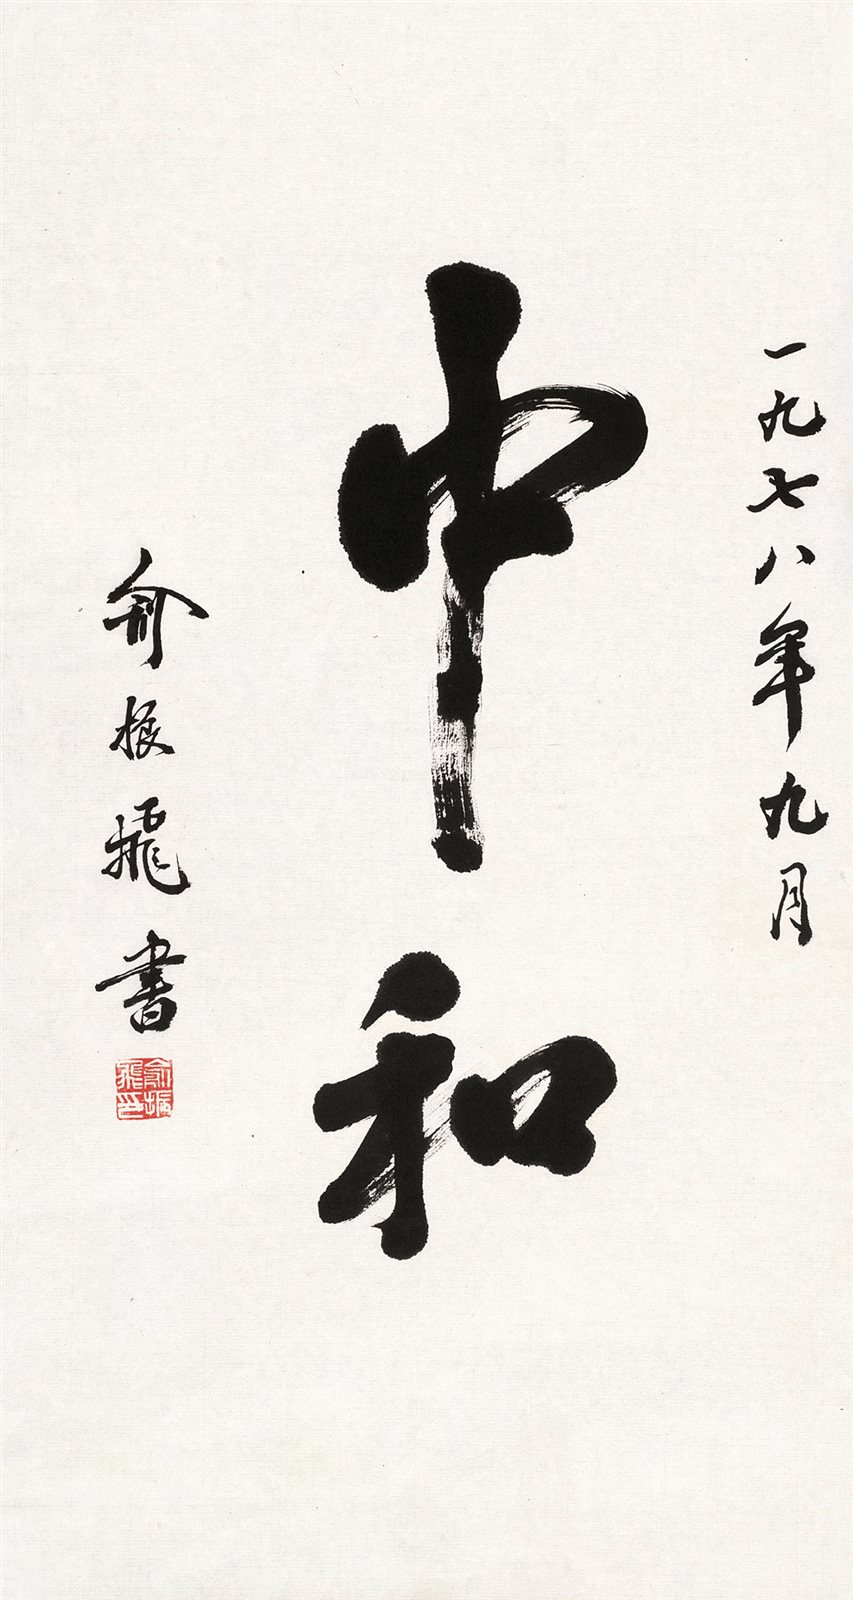 一九七八年九月
中和
俞振飛書
俞振
飛印